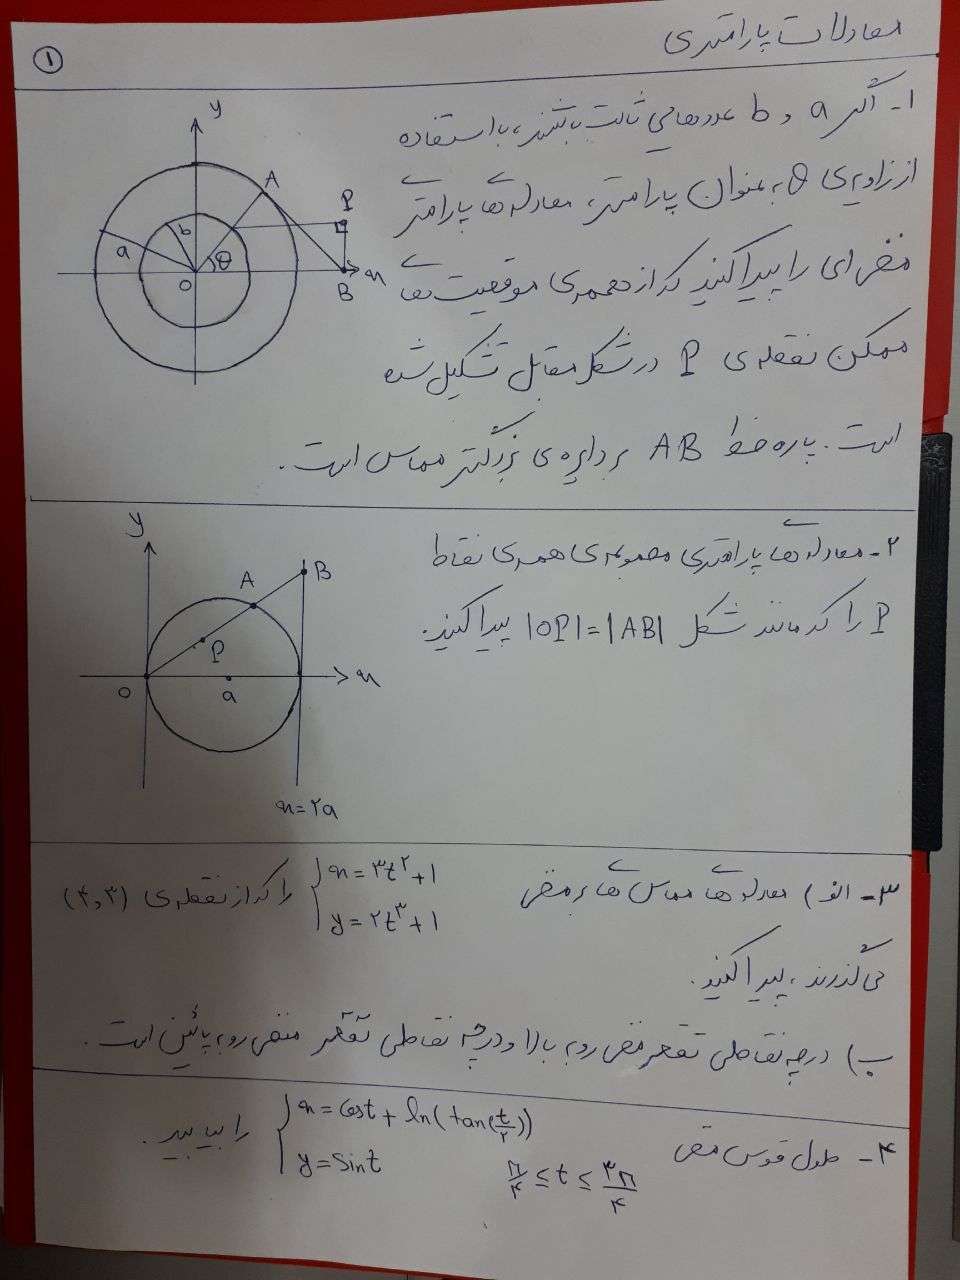 معادلات پارامتری
۱
۱- اگر a و b عددهایی ثابت باشند، با استفاده
از زاویه‌ی θ به عنوان پارامتر، معادله‌های پارامتری
منحنی‌ای را پیدا کنید که از همه‌ی موقعیت‌های
ممکن نقطه‌ی P در شکل مقابل تشکیل شده
است. پاره‌خط AB بر دایره‌ی بزرگتر مماس است.
y
A
P
b
a
θ
O
B
x
۲- معادله‌های پارامتری مجموعه‌ی همه‌ی نقاط
P را که مانند شکل |OP|=|AB| پیدا کنید.
y
A
B
P
O
a
x
x=۲a
۳- الف) معادله‌های مماس‌های بر منحنی { x=۳t^۲+۱ y=۲t^۳+۱ را که از نقطه‌ی (۴,۳)
می‌گذرند، پیدا کنید.
ب) در چه نقاطی تقعر منحنی رو به بالا و در چه نقاطی تقعر منحنی رو به پائین است.
۴- طول قوس منحنی { x=Cost+ln(tan(t/۲)) y=Sint π/۴ ≤ t ≤ ۳π/۴ را بیابید.